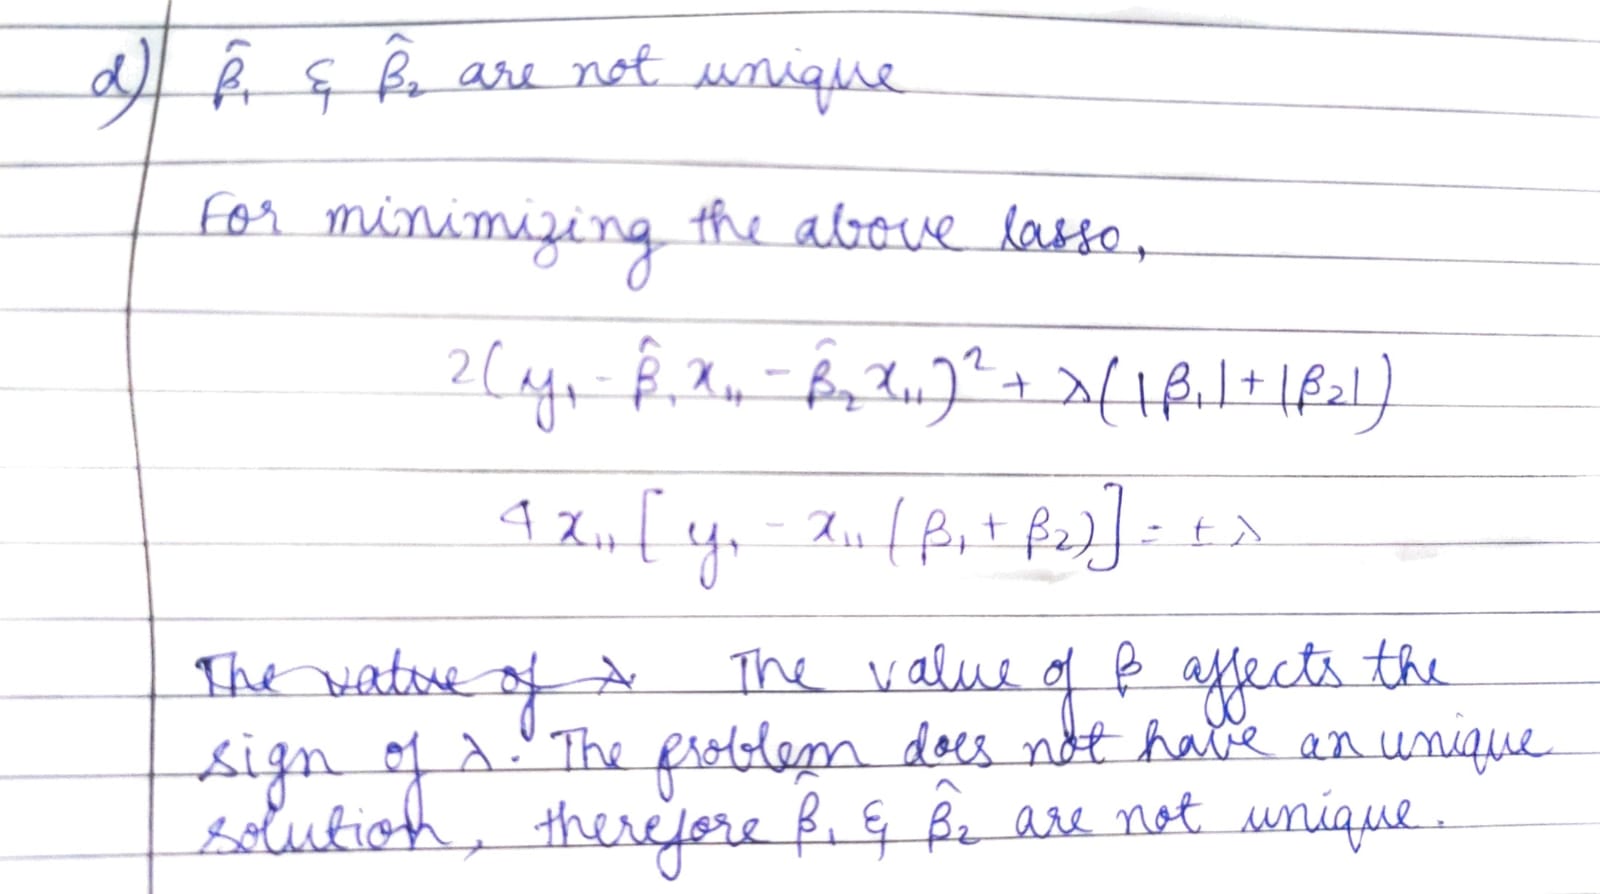 d) β̂₁ & β̂₂ are not unique
For minimizing the above lasso,
2(y₁ - β̂₁x₁₁ - β̂₂x₁₁)² + λ(|β₁| + |β₂|)
4x₁₁[y₁ - x₁₁(β₁ + β₂)] = ± λ
The value of λ The value of β affects the
sign of λ. The problem does not have an unique
solution, therefore β̂₁ & β̂₂ are not unique.